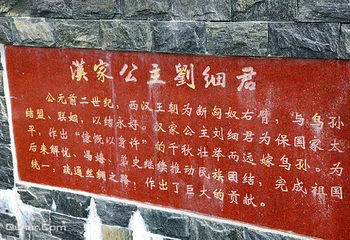 漢家公主劉细君
公元前二世纪，西汉王朝为断匈奴右肩，与乌孙
结盟、联姻，以结永好。汉家公主刘细君为保国家太
平，作出“慷慨以身许”的千秋壮举而远嫁乌孙。为
后来解忧、冯嫽 史继续推动民族团结，完成祖国
统一，疏通丝绸之路，作出了巨大的贡献。
Qunar.Com